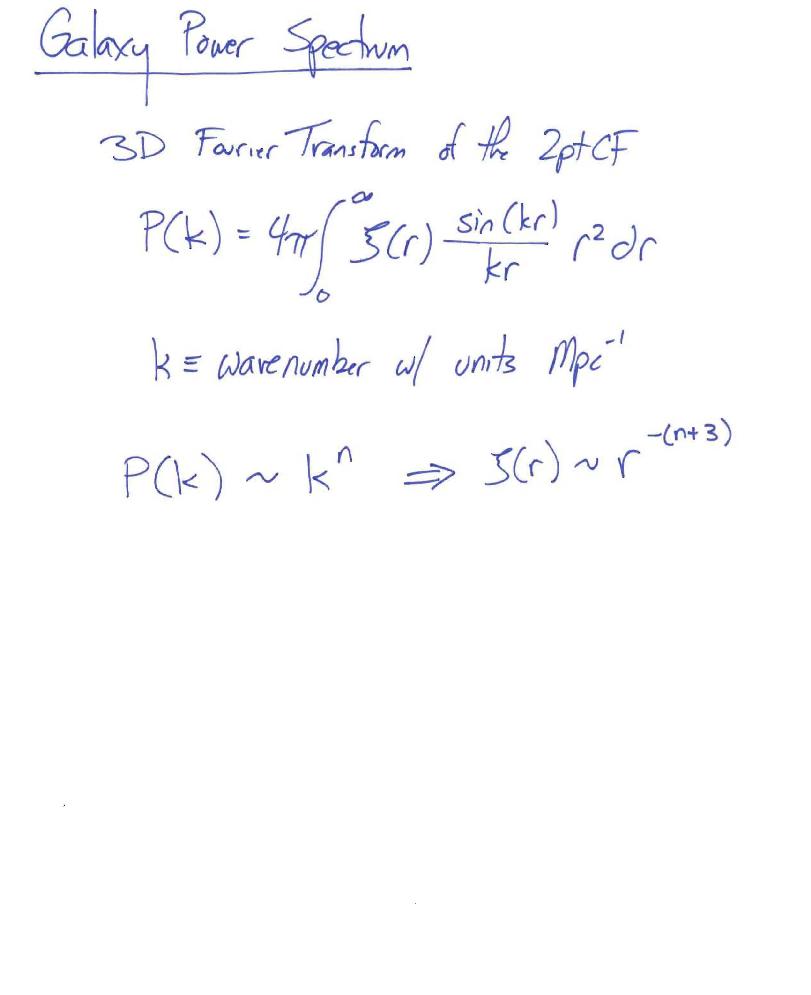 Galaxy Power Spectrum
3D Fourier Transform of the 2ptCF
P(k) = 4π ∫₀^∞ ξ(r) sin(kr)/kr r² dr
k ≡ wavenumber w/ units Mpc⁻¹
P(k) ~ kⁿ ⇒ ξ(r) ~ r^-(n+3)